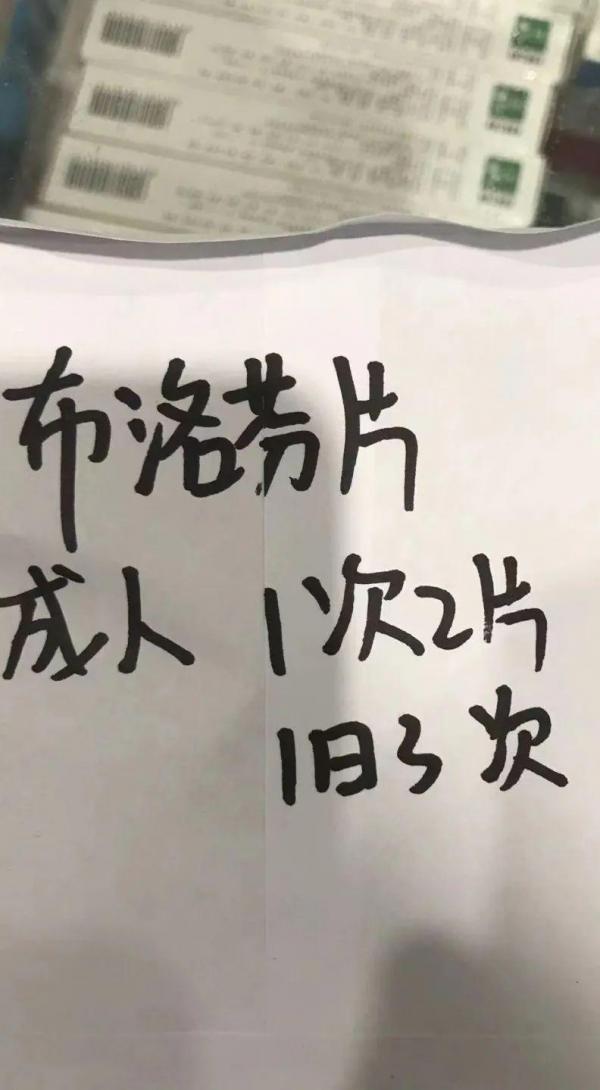 布洛芬片
成人 1次2片
1日3次